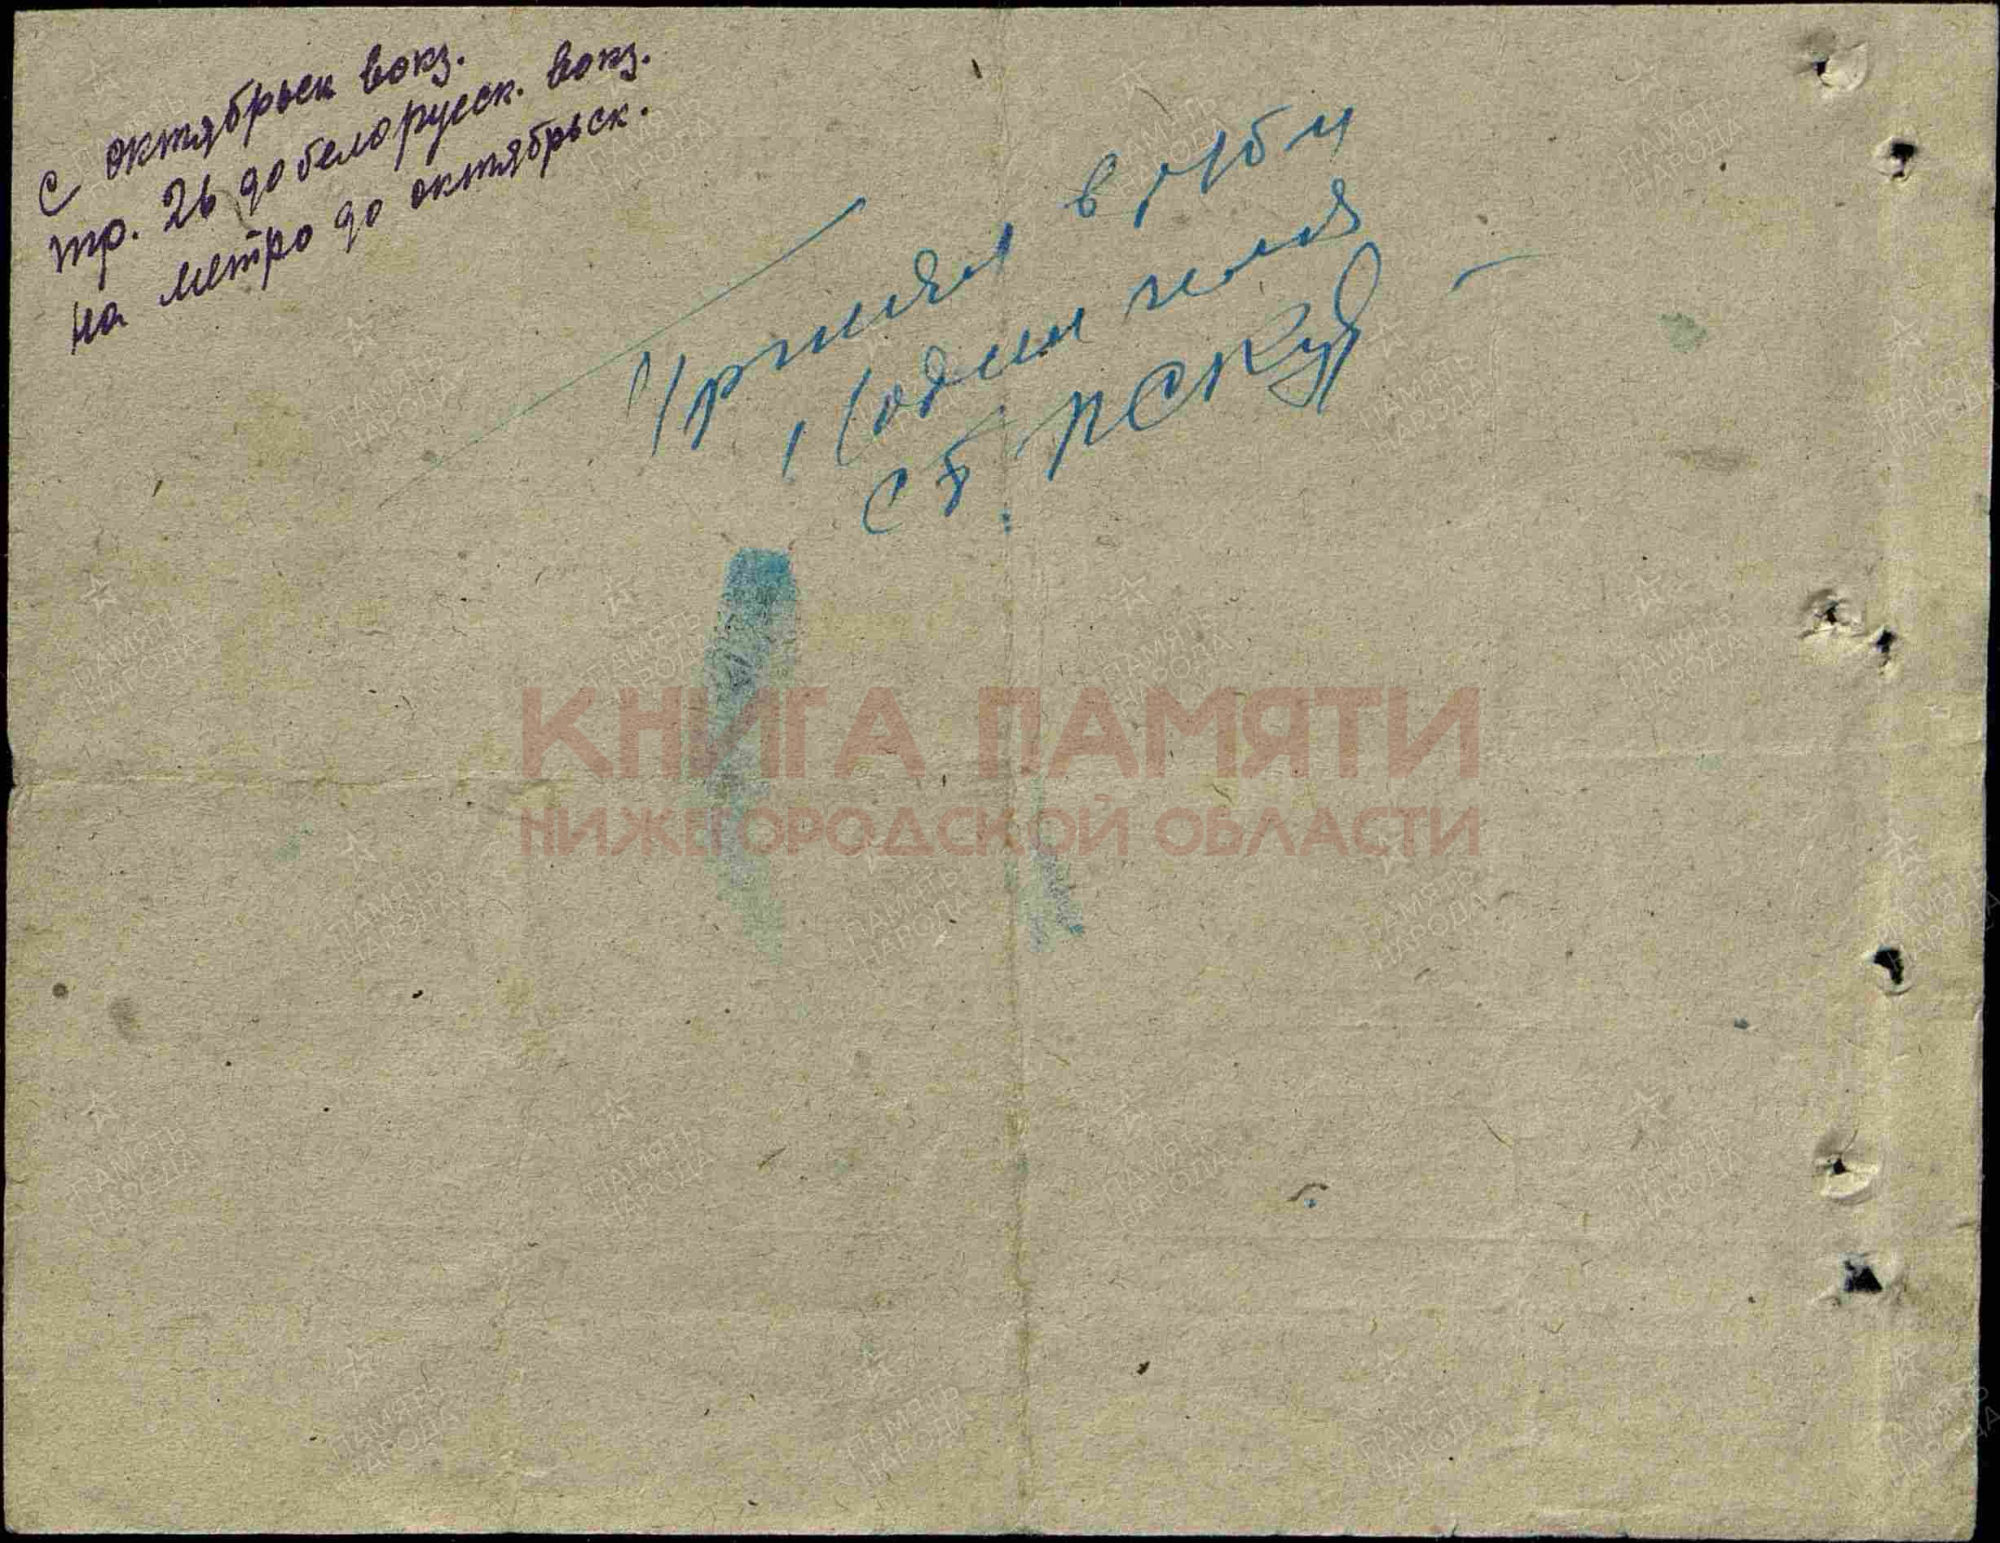 с октябрьск вокз.
тр. 26 до белорусск. вокз.
на метро до октябрьск.
Принял в
1 (один
КНИГА ПАМЯТИ
НИЖЕГОРОДСКОЙ ОБЛАСТИ
ПАМЯТЬ
НАРОДА